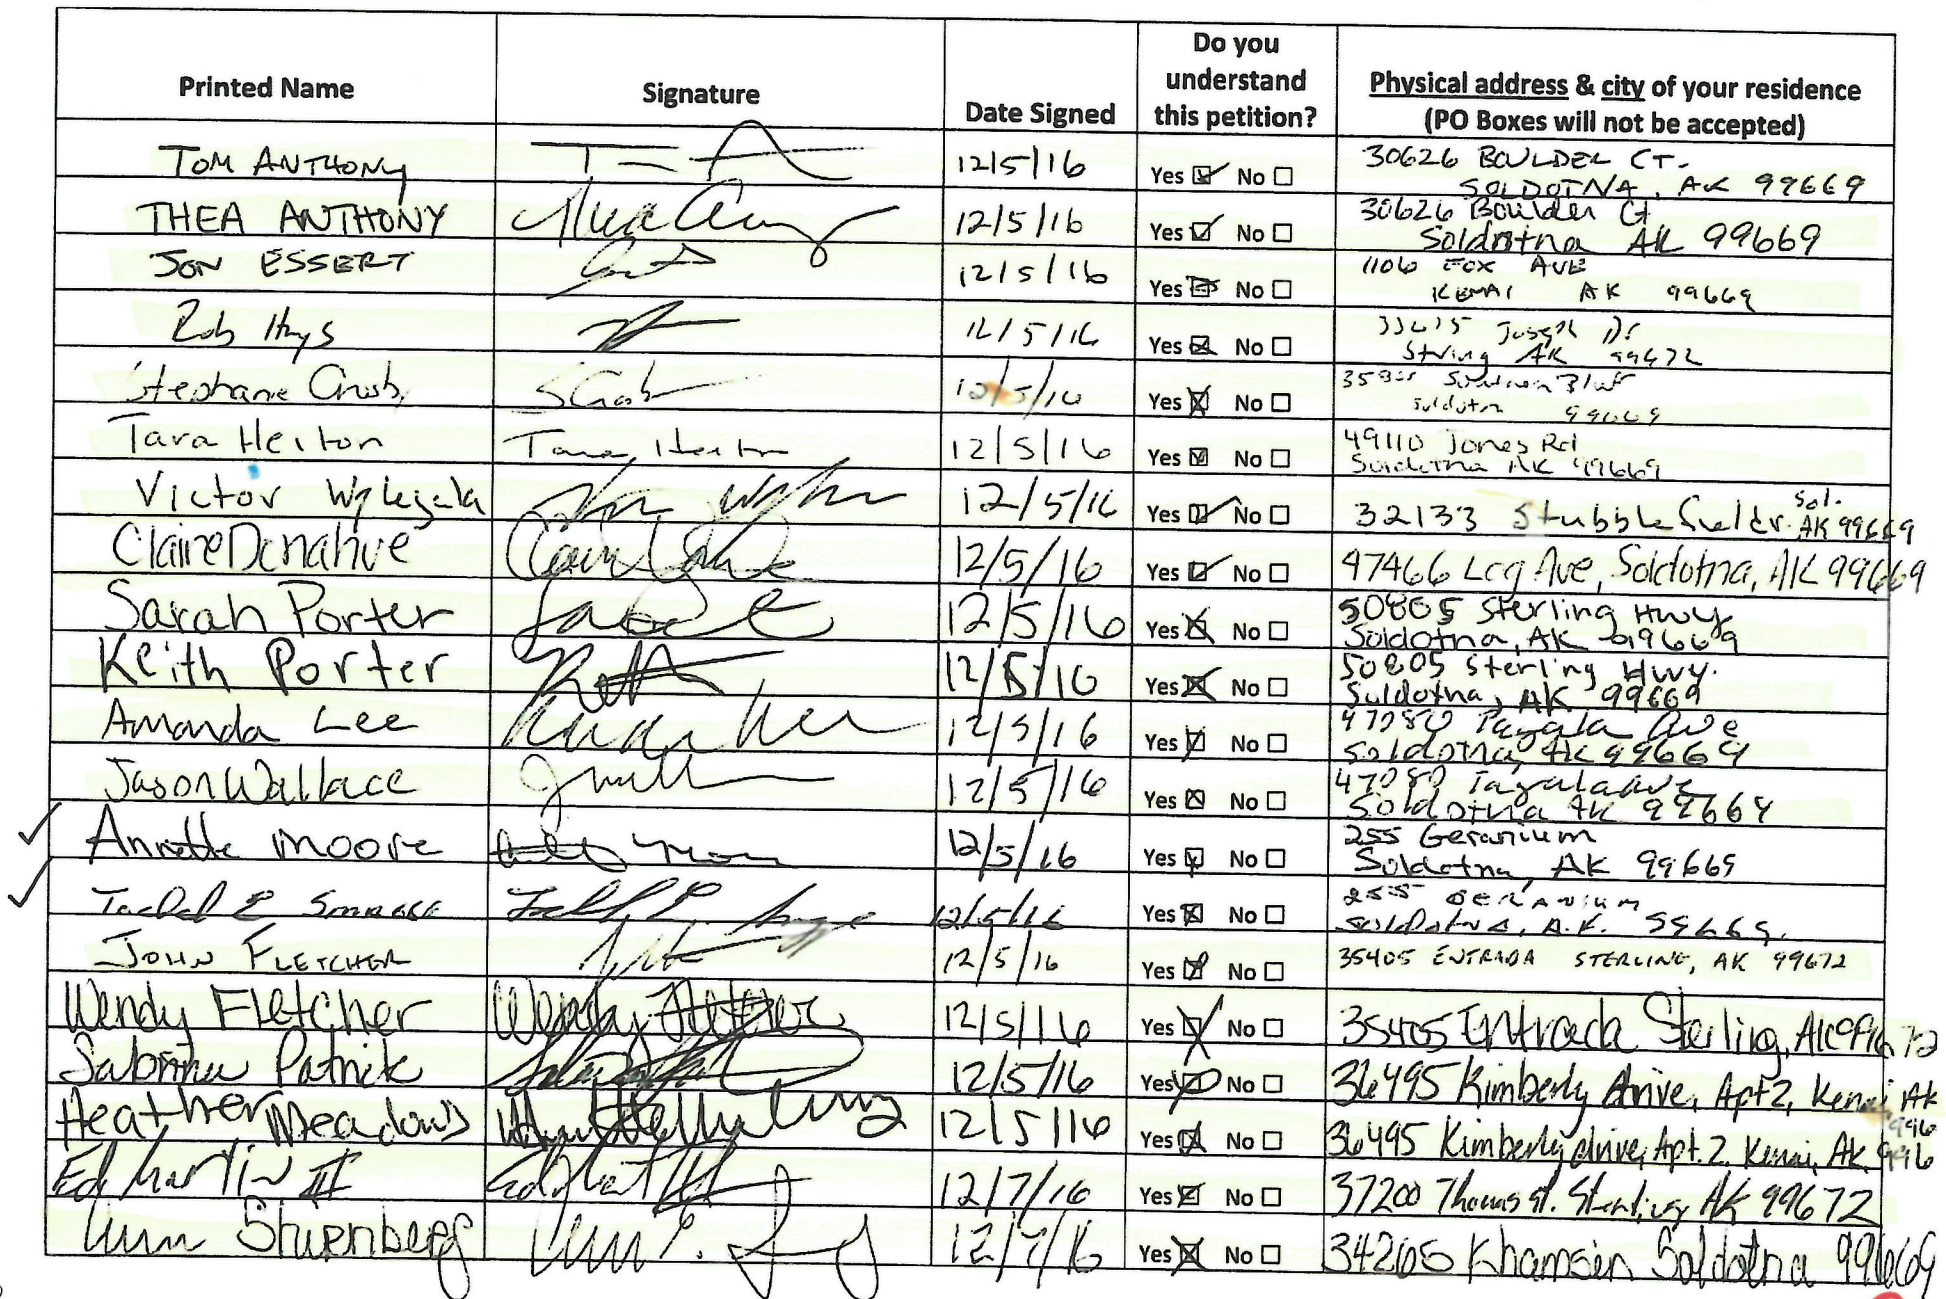 Printed Name
Signature
Date Signed
Do you
understand
this petition?
Physical address & city of your residence
(PO Boxes will not be accepted)
TOM ANTHONY 12/5/16 Yes No 30626 BOULDER CT.
SOLDOTNA, AK 99669
THEA ANTHONY 12/5/16 Yes No 30626 Boulder Ct
Soldotna AK 99669
JON ESSERT 12/5/16 Yes No 1106 FOX AVE
KENAI AK 99669
Rob Hays 12/5/16 Yes No Joseph Dr
Sterling AK 99672
Stephanie 12/5/16 Yes No
Soldotna 99669
Tara Heiton Tara 12/5/16 Yes No 49110 Jones Rd
Soldotna AK 99669
Victor Wylegala 12/5/16 Yes No 32133 Stubblefield Dr. Sol.
AK 99669
Claire Donahue 12/5/16 Yes No 47466 Log Ave, Soldotna, AK 99669
Sarah Porter 12/5/16 Yes No 50805 Sterling Hwy
Soldotna, AK 99669
Keith Porter 12/5/16 Yes No 50805 Sterling Hwy.
Soldotna, AK 99669
Amanda Lee 12/5/16 Yes No 47080 Tagala Ave
Soldotna, AK 99669
Jason Wallace 12/5/16 Yes No 47080 Tagala Ave
Soldotna AK 99669
Annette Moore 12/5/16 Yes No 255 Geranium
Soldotna, AK 99669
12/5/16 Yes No 255 GERANIUM
SOLDOTNA, A.K. 99669.
JOHN FLETCHER 12/5/16 Yes No 35405 ENTRADA STERLING, AK 99672
Wendy Fletcher Wendy Fletcher 12/5/16 Yes No 35405 Entrada Sterling, AK 99672
Sabrina Patrick 12/5/16 Yes No 36495 Kimberly drive, Apt 2, Kenai Ak
996
Heather Meadows 12/5/16 Yes No 36495 Kimberly drive, Apt. 2, Kenai, Ak 996
Ed Martin III 12/7/16 Yes No 37200 Thomas St. Sterling AK 99672
12/7/16 Yes No 34265 Khamsin Soldotna 99669